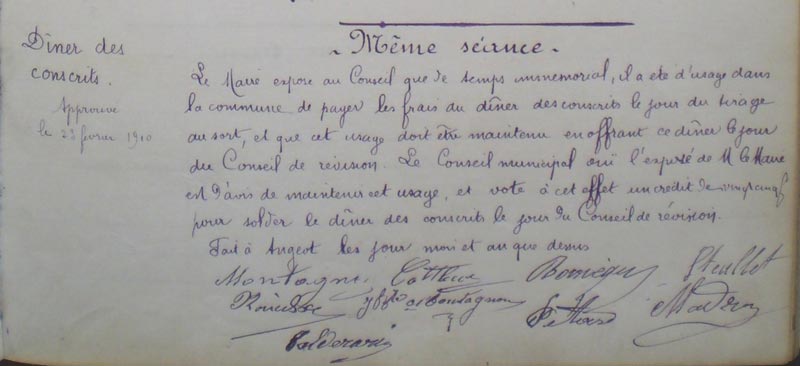 Dîner des
conscrits.
Approuvé
le 22 février 1910
- Même séance -
Le Maire expose au Conseil que de temps immemorial, il a été d'usage dans
la commune de payer les frais du dîner des conscrits le jour du tirage
au sort, et que cet usage doit être maintenu en offrant ce dîner le jour
du Conseil de révision. Le Conseil municipal ouï l'exposé de M. le Maire
est d'avis de maintenir cet usage, et vote à cet effet un crédit de vingt cinq f
pour solder le dîner des conscrits le jour du Conseil de révision.
Fait à Angeot les jour mois et an que dessus
Montagne